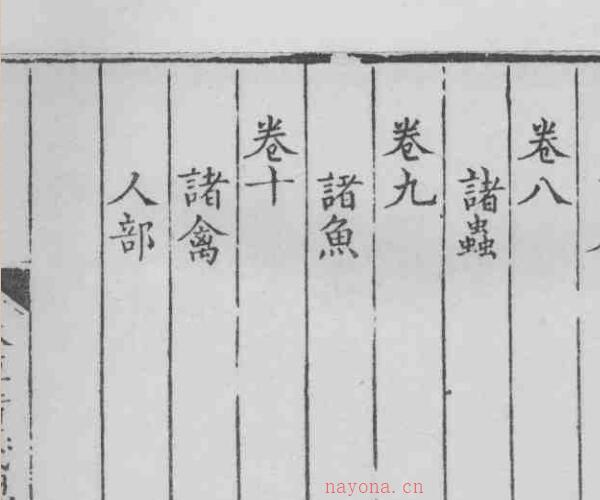 卷八
諸蟲
卷九
諸魚
卷十
諸禽
人部
nayona.cn